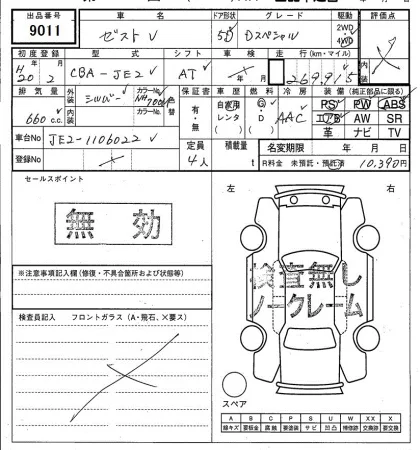 出品番号 車名 ドア形状 グレード 駆動 評価点
9011 ゼスト 5D Dスペシャル 2WD 4WD
初度登録 型式 シフト 車検 走行(km・マイル) 内
H20年2月 CBA-JE2 AT 年 月 269,915
排気量 外装 シルバー カラーNo. NH700M 色替 保証書 車歴 燃料 冷房 装備(純正部品に限る)
660c.c. 内装 カラーNo. 有・無 自家用 レンタ G・D AAC PS PW ABS
エアB AW SR
革 ナビ TV
車台No JE2-1106022 定員 4人 積載量 t 名変期限 年 月 日
登録No R料金 未預託・預託済 10,390円
セールスポイント
無効
左 右
検査無し
ノークレーム
※注意事項記入欄(修復・不具合箇所および状態等)
検査員記入 フロントガラス(A・飛石、×要ス)
スペア
A B C P S U W XX X
線キズ 要板金 腐触 要塗装 サビ 凹凸 補修跡 交換跡 要交換